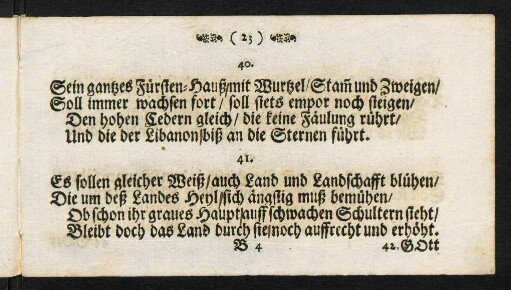 ( 23 )
40.
Sein gantzes Fürsten-Hauß/mit Wurtzel/Stam̃ und Zweigen/
Soll immer wachsen fort/ soll stets empor noch steigen/
Den hohen Cedern gleich/ die keine Fäulung rührt/
Und die der Libanon/biß an die Sternen führt.
41.
Es sollen gleicher Weiß/auch Land und Landschafft blühen/
Die um deß Landes Heyl/sich ängstig muß bemühen/
Ob schon ihr graues Haupt/auff schwachen Schultern steht/
Bleibt doch das Land durch sie/noch auffrecht und erhöht.
B 4 42. GOtt